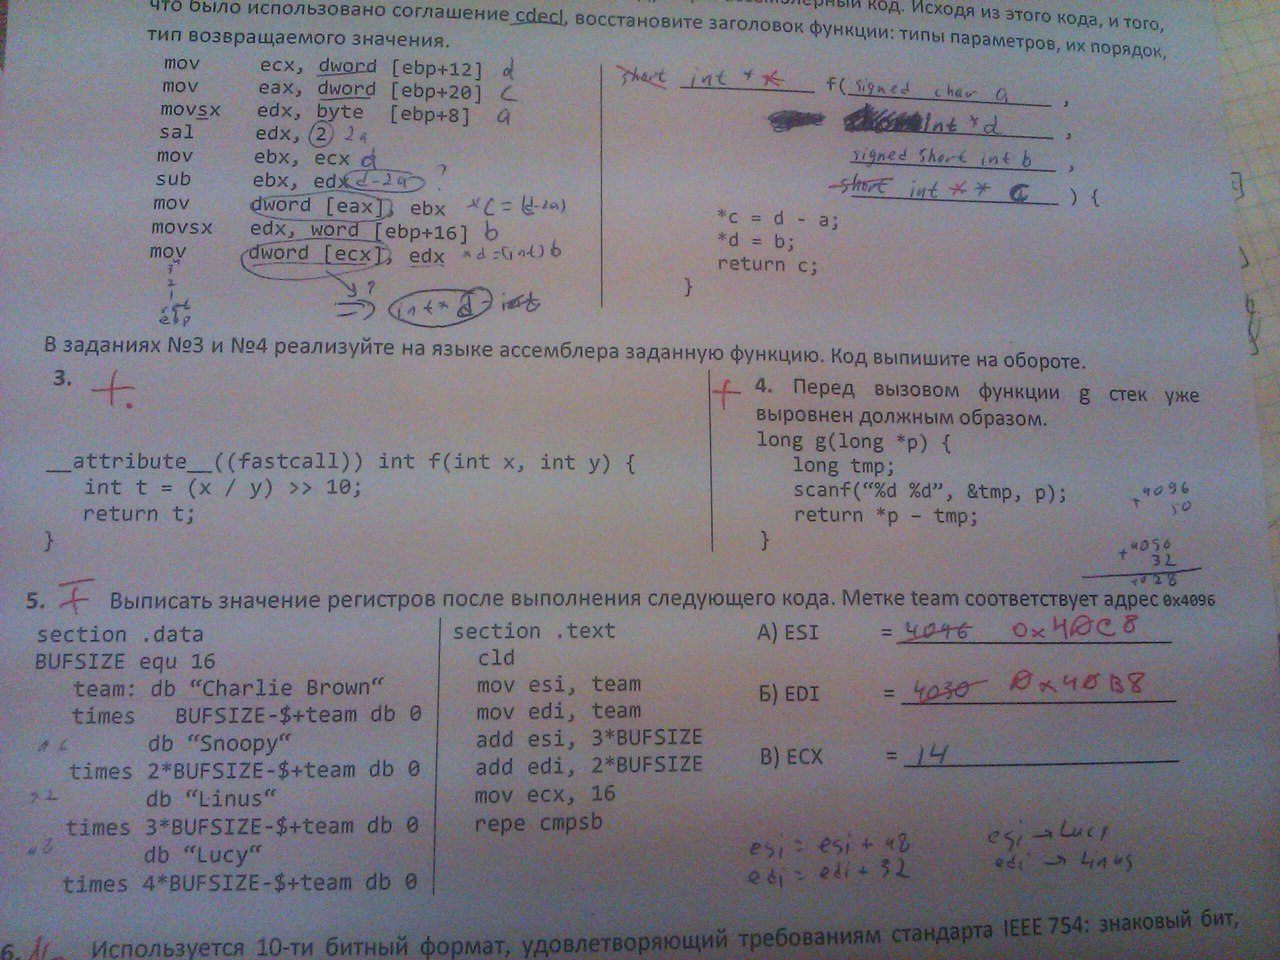 что было использовано соглашение cdecl, восстановите заголовок функции: типы параметров, их порядок,
код. Исходя из этого кода, и того,
тип возвращаемого значения.
mov ecx, dword [ebp+12] d
mov eax, dword [ebp+20] c
movsx edx, byte [ebp+8] a
sal edx, 2 2a
mov ebx, ecx d
sub ebx, edx d-2a ?
mov dword [eax], ebx *c = (d-2a)
movsx edx, word [ebp+16] b
mov dword [ecx], edx *d=(int) b
3
2
1
ret
ebp
?
=> int* d - int
short int * * f( signed char a ,
int *d ,
signed short int b ,
short int * * c ) {
*c = d - a;
*d = b;
return c;
}
В заданиях №3 и №4 реализуйте на языке ассемблера заданную функцию. Код выпишите на обороте.
3. +.
__attribute__((fastcall)) int f(int x, int y) {
int t = (x / y) >> 10;
return t;
}
+ 4. Перед вызовом функции g стек уже
выровнен должным образом.
long g(long *p) {
long tmp;
scanf(“%d %d”, &tmp, p);
return *p - tmp;
}
+ 4096
+ 4096
32
5. Выписать значение регистров после выполнения следующего кода. Метке team соответствует адрес 0x4096
section .data
BUFSIZE equ 16
team: db “Charlie Brown“
times BUFSIZE-$+team db 0
db “Snoopy“
times 2*BUFSIZE-$+team db 0
db “Linus“
times 3*BUFSIZE-$+team db 0
db “Lucy“
times 4*BUFSIZE-$+team db 0
section .text
cld
mov esi, team
mov edi, team
add esi, 3*BUFSIZE
add edi, 2*BUFSIZE
mov ecx, 16
repe cmpsb
А) ESI = 4096 0x40C8
Б) EDI = 4030 0x40B8
В) ECX = 14
esi = esi + 48
edi = edi + 32
esi → Lucy
edi → Linus
6. Используется 10-ти битный формат, удовлетворяющий требованиям стандарта IEEE 754: знаковый бит,